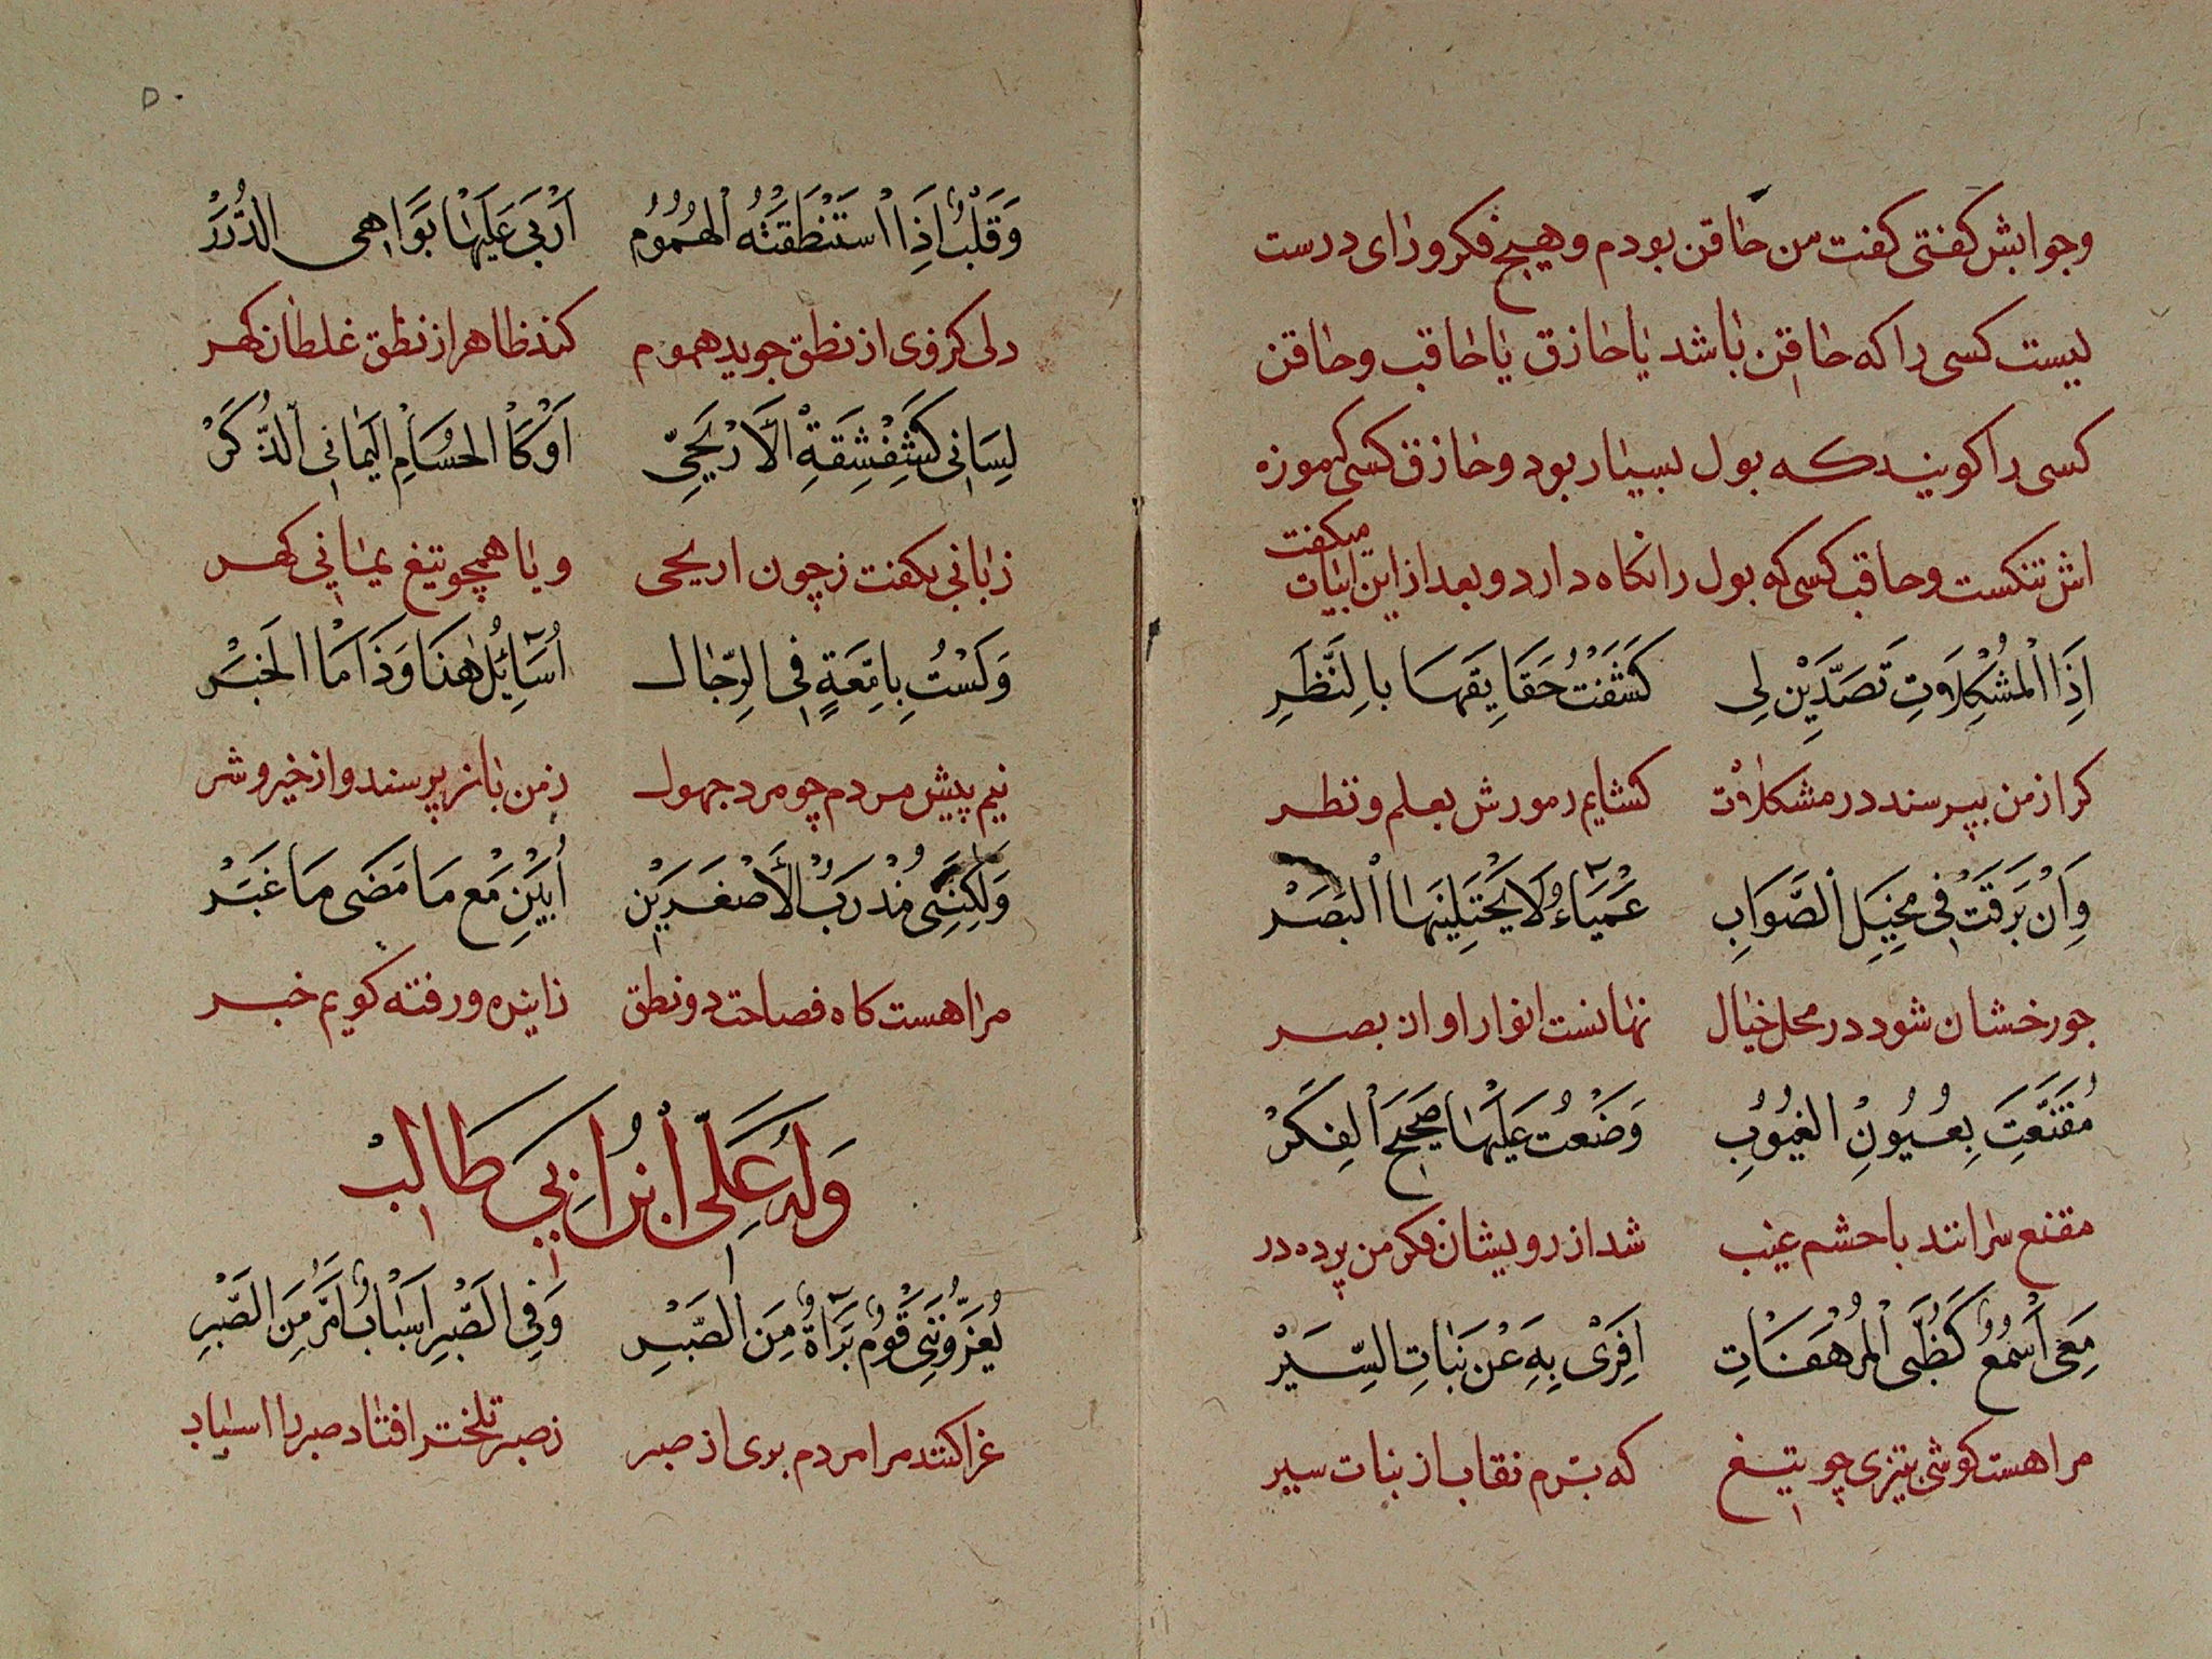 وجوابش کفتی کفت من حاقن بودم وهیچ فکر ورای درست
نیست کسی را که حاقن باشد یا حازق یا حاقب وحاقن
کسی را کویند که بول بسیار بود وحازق کسی که موزه
اش تنکست وحاقب کسی که بول را نکاه دارد و بعد از این ابیات میکفت
اِذَا الْمُشْكِلَاتِ تَصَدَّيْنَ لِی كَشَفْتُ حَقَايِقَهَا بِالنَّظَرِ
کر از من بپرسند در مشکلات کشایم رموزش بعلم و نظر
وَاِنْ بَرَقَتْ فِی مَخِيَلِ الصَّوَابِ عَمْيَآءُ لَا يَجْتَلِيْنَهَا الْبَصَرْ
چو رخشان شود در محل خیال نهانست انوار او از بصر
مُقَنَّعَتَ بِعُيُونِ الْغُيُوبِ وَضَعْتُ عَلَيْهَا صَحِيحَ الْفِكَرْ
مقنع سرانند با چشم غیب شد از رویشان فکر من پرده در
مَعِی اَسْمُعٌ كَظُبَی الْمُرْهَفَاتِ اَفِرَی بِهِ عَنْ بَنَاتِ السِّيَرْ
مرا هست کوشی بتیزی چو تیغ که بترم نقاب از بنات سیر
۵۰
وَقَلْبٌ اِذَا اسْتَنْطَقَتْهُ الْهُمُومُ اَرْبَی عَلَيْهَا بَوَاهِی الدُّرَرْ
دلی کزوی از نطق جوید هموم کند ظاهر از نطق غلطان کهر
لِسَانِی كَشِقْشِقَةِ الْاَرْيَحِیّ اَوْ كَا الْحُسَامِ الْيَمَانِی الذَّكَرْ
زبانی بکفت ز چون اریحی و یا همچو تیغ یمانی کهر
وَلَسْتُ بِاِمَّعَةٍ فِی الرِّجَالِ اُسَآئِلُ هٰذَا وَذَا مَا الْخَبَرْ
نیم پیش مردم چو مرد جهول ز من باز پرسند و از خیر و شر
وَلٰكِنَّنِی مُذْرَبُ الْاَصْغَرَيْنِ اُبَيِّنِ مَعْ مَا مَضَی مَا غَبَرْ
مرا هست کاه فصاحت دو نطق زاینده و رفته کویم خبر
وَلَهُ عَلِیّ ابْنُ اَبِی طَالِبْ
يُعَزُّونَنِی قَوْمٌ بَرَآةٌ مِنَ الصَّبْرِ وَفِی الصَّبْرِ اَسْبَابٌ اَمَرُّ مِنَ الصَّبْرِ
عزا کنند مرا مردم بری از صبر ز صبر تلختر افتاد صبر را اسباب